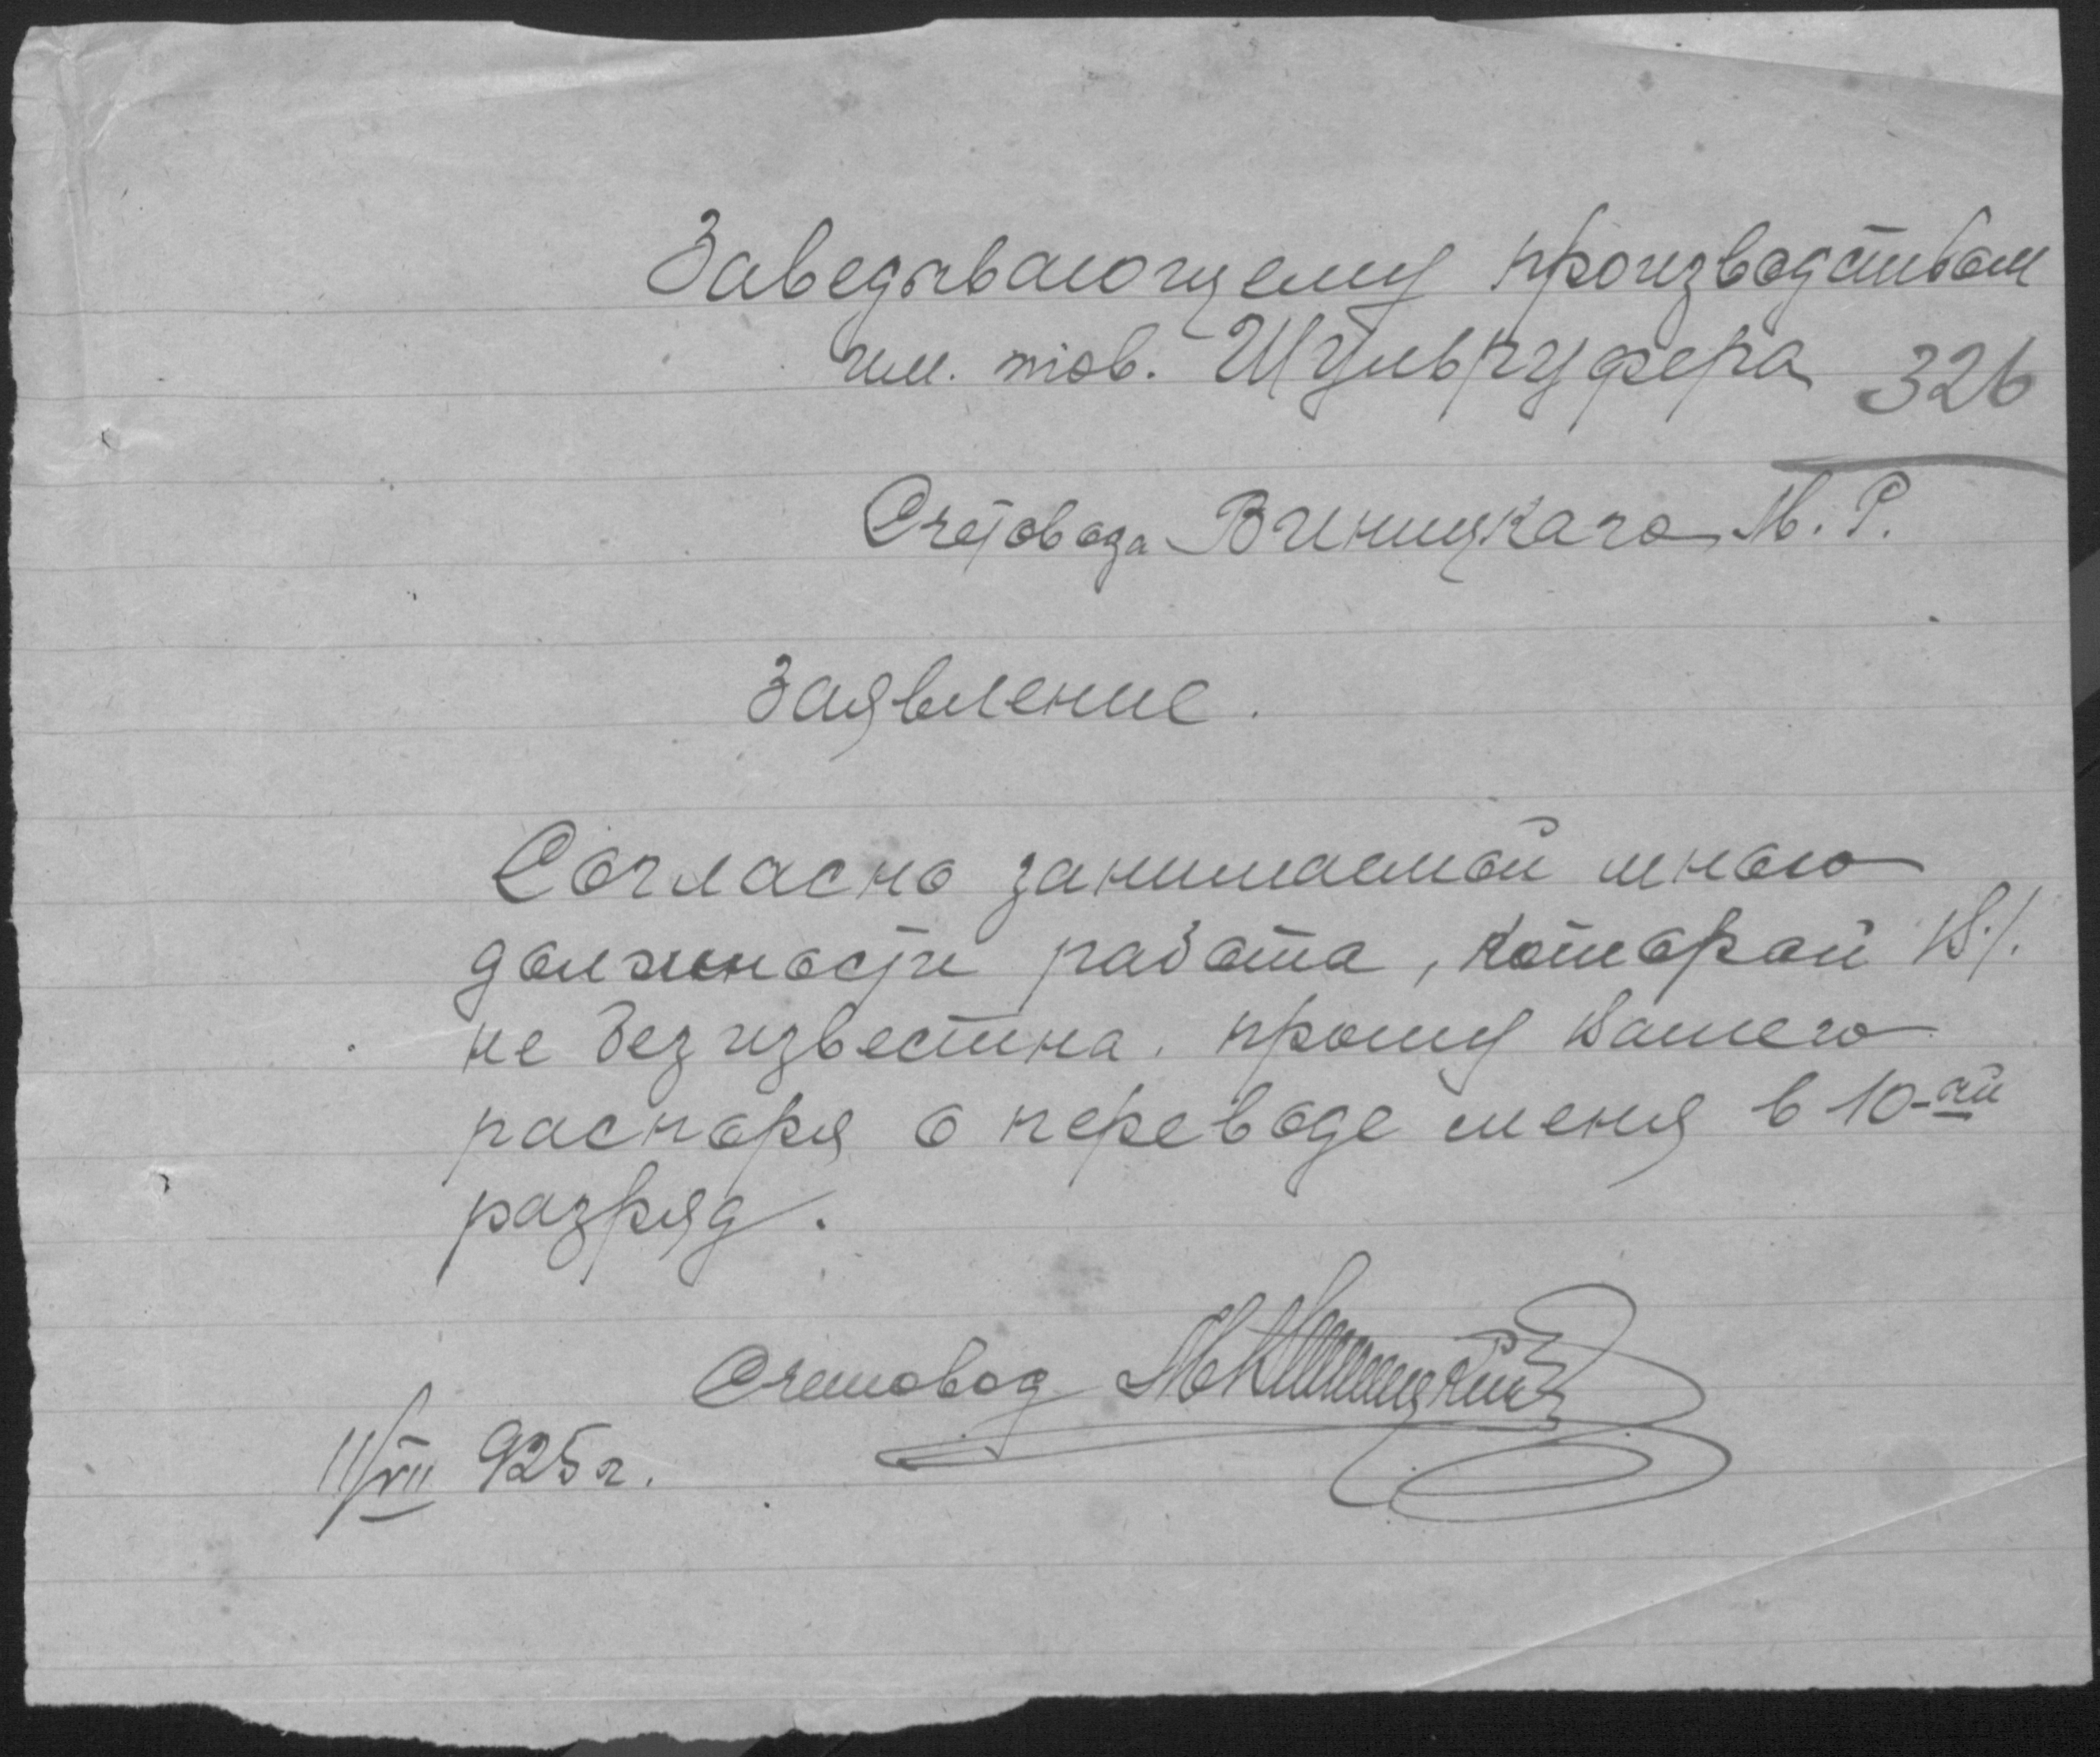 Заведывающему производством
им. тов. Шульруфера
326
Счетовода Виницкаго М. Р.
Заявление.
Согласно занимаемой мною
должности работа, которой В/.
не безизвестна. прошу Вашего
распоря о переводе меня в 10-ый
разряд.
Счетовод
11/VII 925 г.